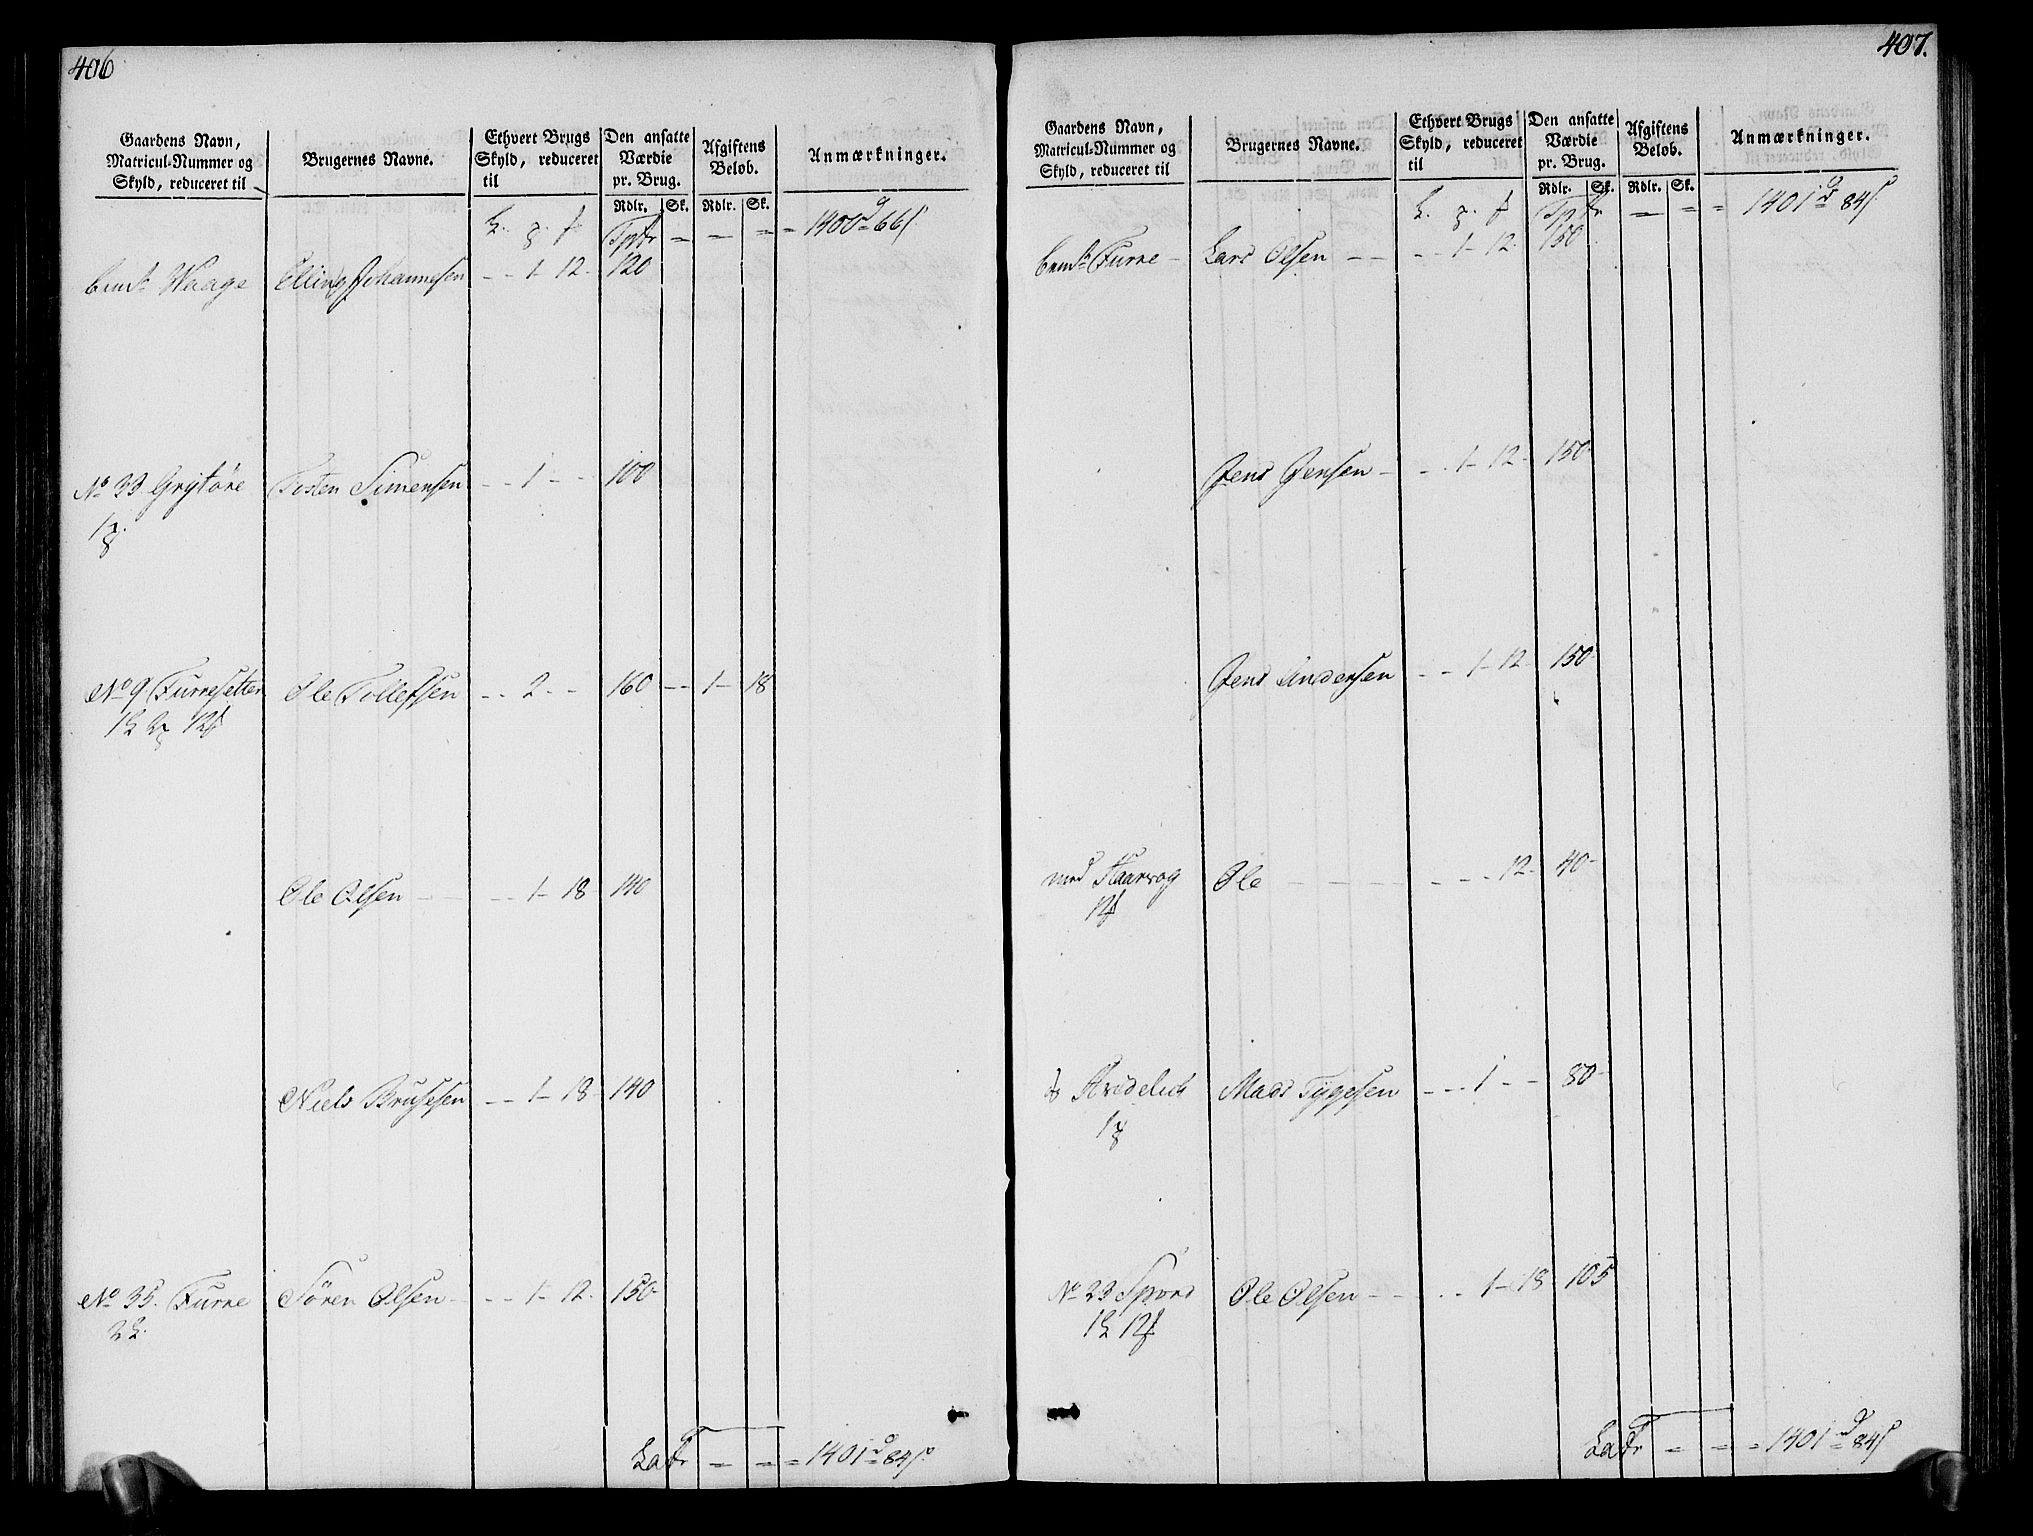 406
Gaardens Navn, Matricul-Nummer og Skyld, reduceret til | Brugernes Navne. | Ethvert Brugs Skyld, reduceret til | Den ansatte Værdie pr. Brug. | Afgiftens Beløb. | Anmærkninger.
Rdlr. Sk. Rdlr. Sk.
Tpdr = = = = 1400 66
Waage Elling Johannesen - - 1 - 12 - 120
No 33 Grytøre Tosten Simensen - - 1 - - 100
1
No 9 Furresetter Ole Tollefsen - - 2 - - 160 - - 1 - 18
12
Ole Olsen - - - - 1 - 18 - 140
Niels Brusesen - - 1 - 18 - 140
No 35. Furre Sören Olsen - - - 1 - 12 - 150
2
Latr = = = 1401 84
407.
Gaardens Navn, Matricul-Nummer og Skyld, reduceret til | Brugernes Navne. | Ethvert Brugs Skyld, reduceret til | Den ansatte Værdie pr. Brug. | Afgiftens Beløb. | Anmærkninger.
Rdlr. Sk. Rdlr. Sk.
Tpdr = = = 1401 84
Furre - Lars Olsen - - - - 1 - 12 - 150
Jens Jensen - - - 1 - 12 - 150
Jens Andersen - - 1 - 12 - 150
med Ole - - - - - - - 12 - 40
12
Mads Tygesen - - - 1 - - 80
1
No 23 Ole Olsen - - - - 1 - 18 - 105
12
Latr = = = 1401 84